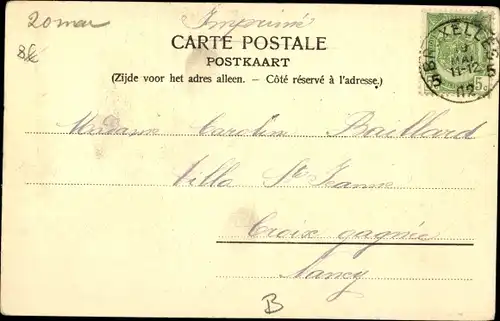 20 mar
Imprimé
CARTE POSTALE
POSTKAART
(Zijde voor het adres alleen. – Côté réservé à l'adresse.)
BRUXELLES 5
MAI
11-12
02
5c
Madame Carolin Baillard
Villa Ste Jeanne
Croix gagnée
Nancy
B